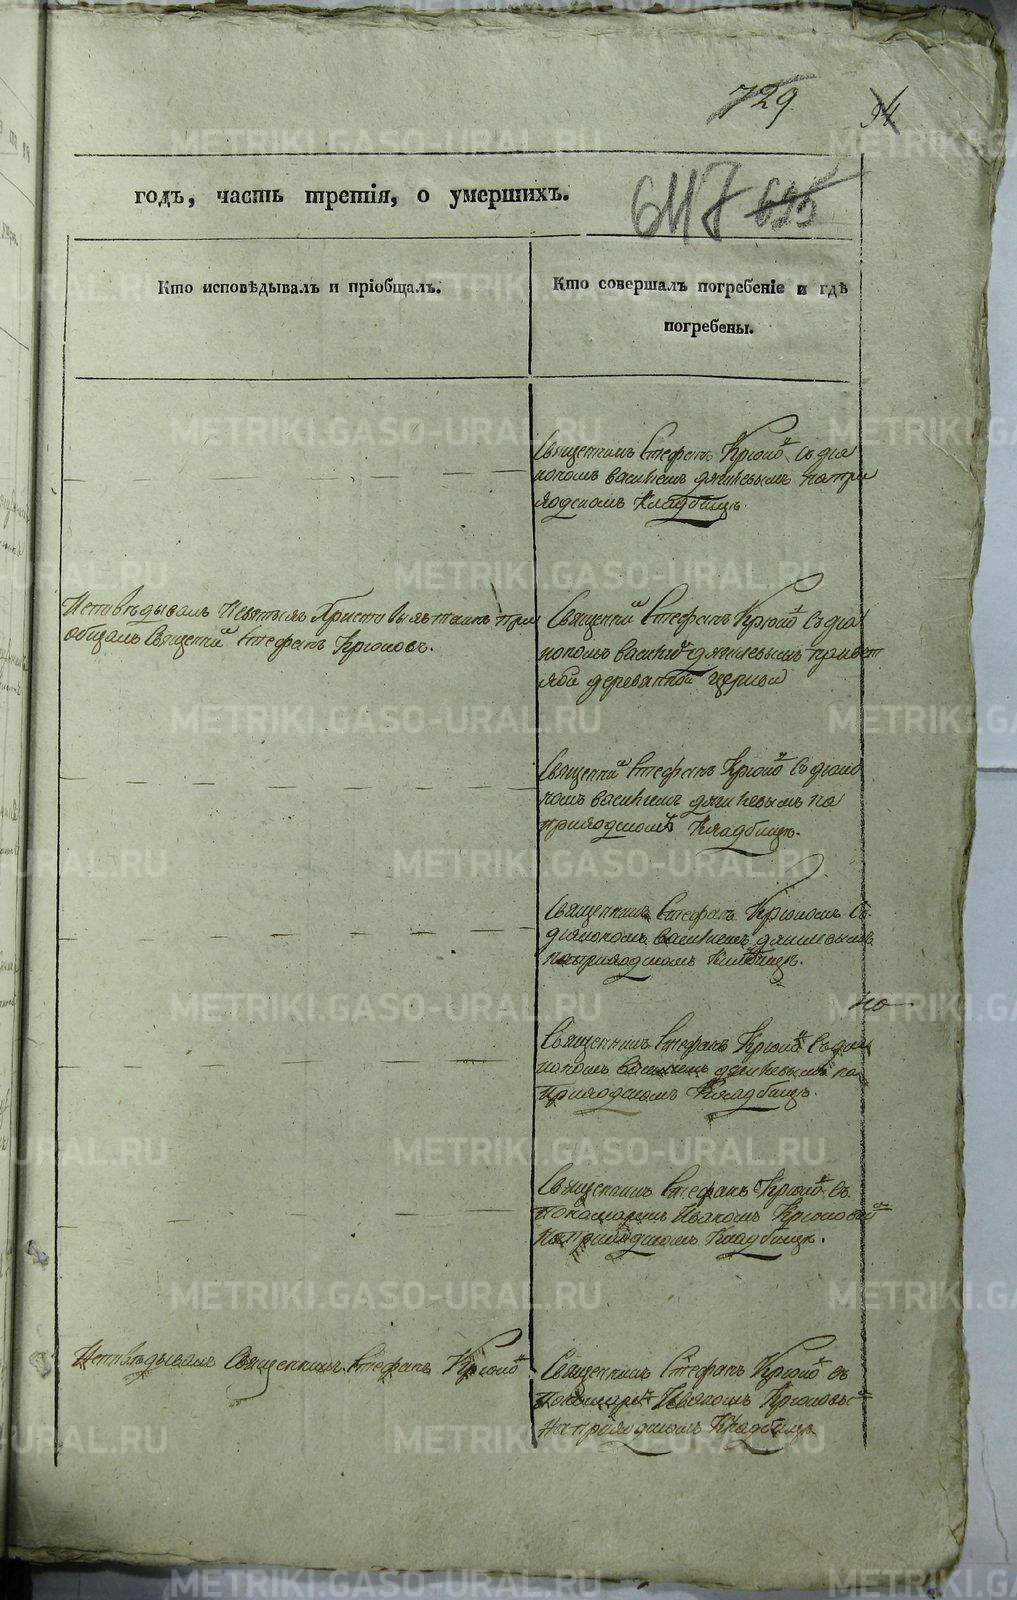 729
94
годъ, часть третія, о умершихъ.
647 695
Кто исповѣдывалъ и пріобщалъ.
Кто совершалъ погребеніе и гдѣ
погребены.
Священникъ Стефанъ Крюковъ съ діа
кономъ Василіемъ на при
ходскомъ кладбищѣ.
Исповѣдывалъ и Святыхъ Христовыхъ таинъ при
общалъ Священникъ Стефанъ Крюковъ.
Священникъ Стефанъ Крюковъ съ діа
кономъ Василіемъ
деревянной церкви
Священникъ Стефанъ Крюковъ съ діако
номъ Василіемъ на
приходскомъ кладбищѣ.
Священникъ Стефанъ Крюковъ съ
діакономъ Василіемъ
на приходскомъ кладбищѣ.
Священникъ Стефанъ Крюковъ съ діа
кономъ Василіемъ на
приходскомъ кладбищѣ.
Священникъ Стефанъ Крюковъ съ
пономаремъ Иваномъ Крюковымъ
на приходскомъ кладбищѣ.
Исповѣдывалъ Священникъ Стефанъ Крюковъ
Священникъ Стефанъ Крюковъ съ
пономаремъ Иваномъ Крюковымъ
на приходскомъ кладбищѣ
METRIKI.GASO-URAL.RU